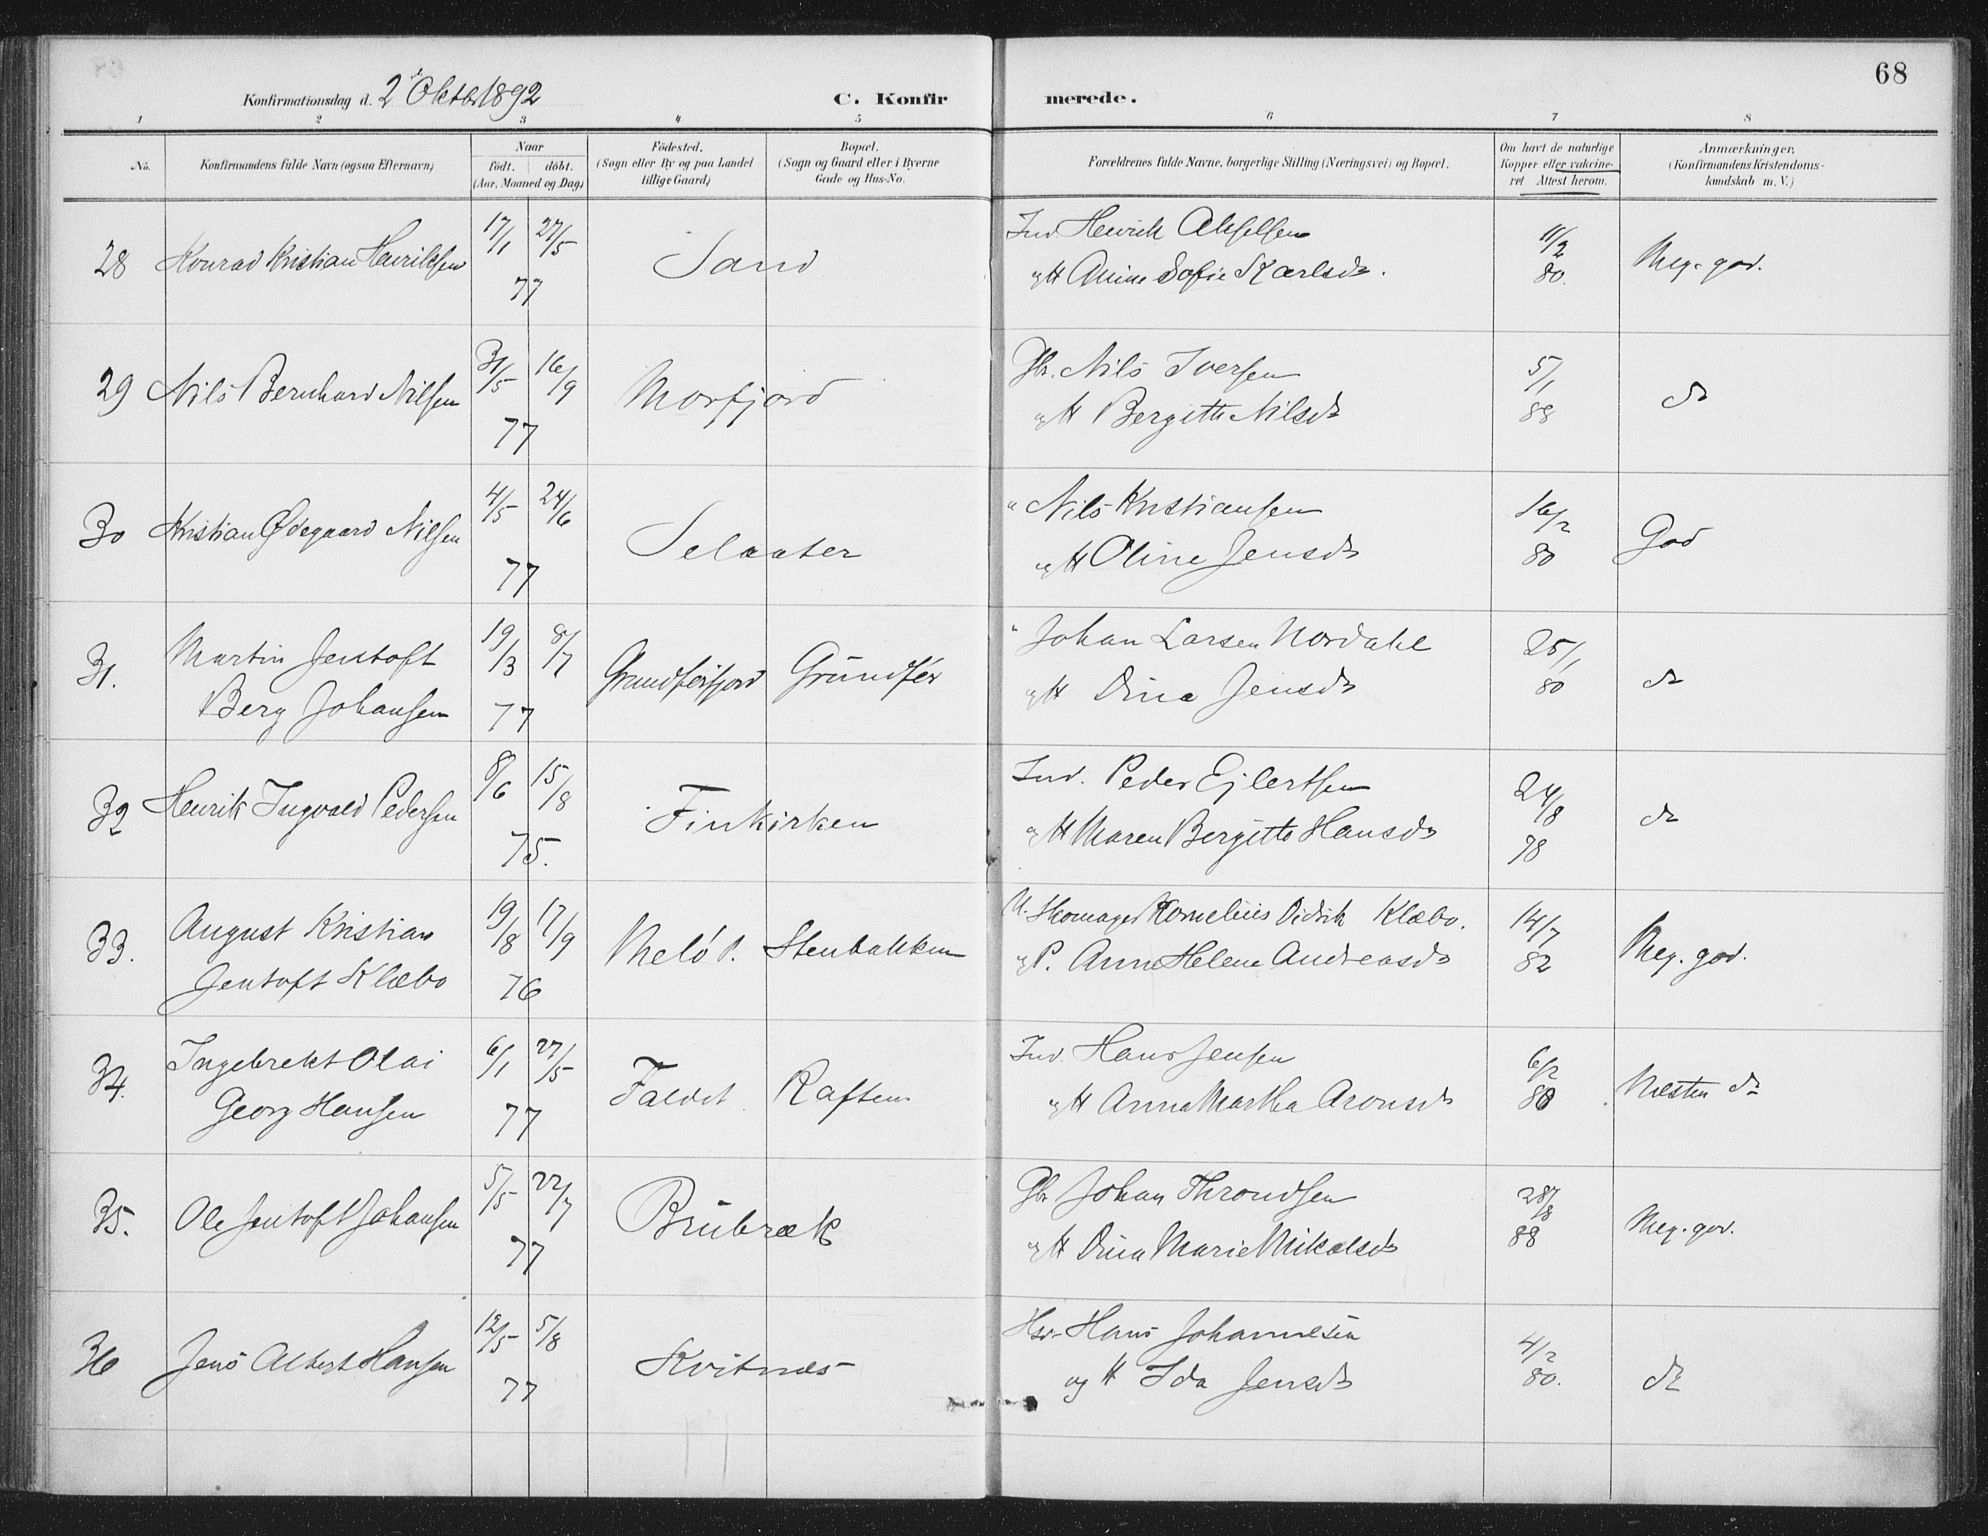 68
Konfirmationsdag d. 2 Oktbr 1892
C. Konfirmerede.
1 2 3 4 5 6 7 8
No.
Konfirmandens fulde Navn (ogsaa Efternavn)
Naar
födt. döbt.
(Aar, Maaned og Dag)
Födested.
(Sogn eller By og paa Landet
tillige Gaard)
Bopæl.
(Sogn og Gaard eller i Byerne
Gade og Hus-No.
Forældrenes fulde Navne, borgerlige Stilling (Næringsvei) og Bopæl.
Om havt de naturlige
Kopper eller vakcine-
ret Attest herom.
Anmærkninger.
(Konfirmandens Kristendoms-
kundskab m. V.)
28 Konrad Kristian Henriksen 17/1 27/5 77 Sand
Ind. Henrik Akselsen
og H Anine Sofie Karlsd.
11/2 80. Meg. god.
29 Nils Bernhard Nilsen 31/5 16/9 77 Morfjord
Gbr. Nils Iversen
og H Bergitte Nilsd
5/1 88 do
30 Kristian Ødegaard Nilsen 4/5 24/6 77 Selaater
" Nils Kristiansen
og H Oline Jensd
16/2 80 God
31. Martin Jentoft
Berg Johansen 19/3 8/7 77 Grundførfjord Grundfør
" Johan Larsen Nordahl
og H Dina Jensd
25/1 80 do
32 Henrik Ingvald Pedersen 8/6 15/8 75. Finkirken
Ind. Peder Ejlertsen
og H Maren Bergitte Hansd
24/8 78 do
33. August Kristian
Jentoft Klæbo 19/8 17/9 76 Melö P. Stenbakken
U. Skomager Kornelius Didrik Klæbo.
og P. Anne Helene Andreasd
14/7 82 Meg. god.
34. Ingebrekt Olai
Georg Hansen 6/1 27/5 77 Faldet Raften
Ind. Hans Jensen
og H Anna Martha Aronsd
6/2 80 Næsten do
35. Ole Jentoft Johansen 5/5 22/7 77 Brubræk
Gbr Johan Throndsen
og H Dina Marie Mikalsd
28/8 88 Meg. god.
36 Jens Albert Hansen 12/5 5/8 77 Kvitnes
Hsr. Hans Johannesen
og H Ida Jensd
4/2 80. do